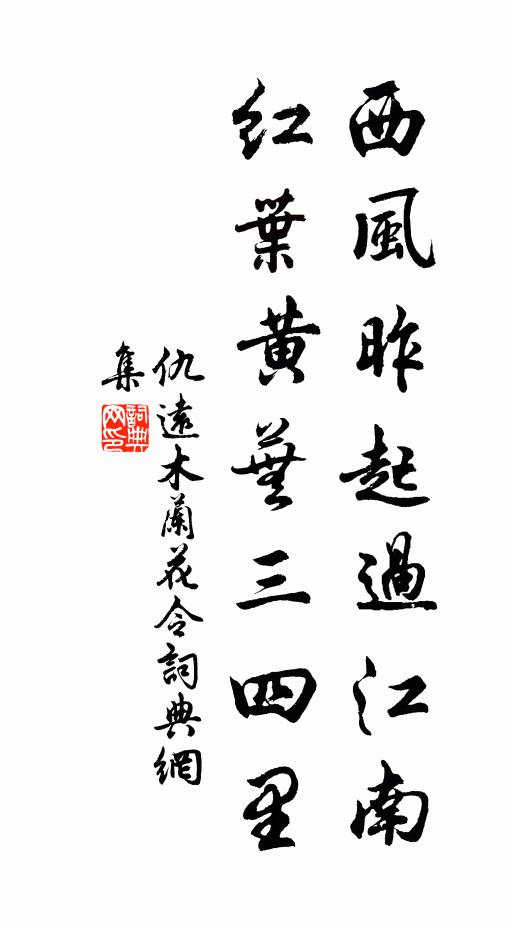 西風昨起過江南
紅葉黃蕪三四里
仇遠木蘭花令詞典網
集
詞典
网印